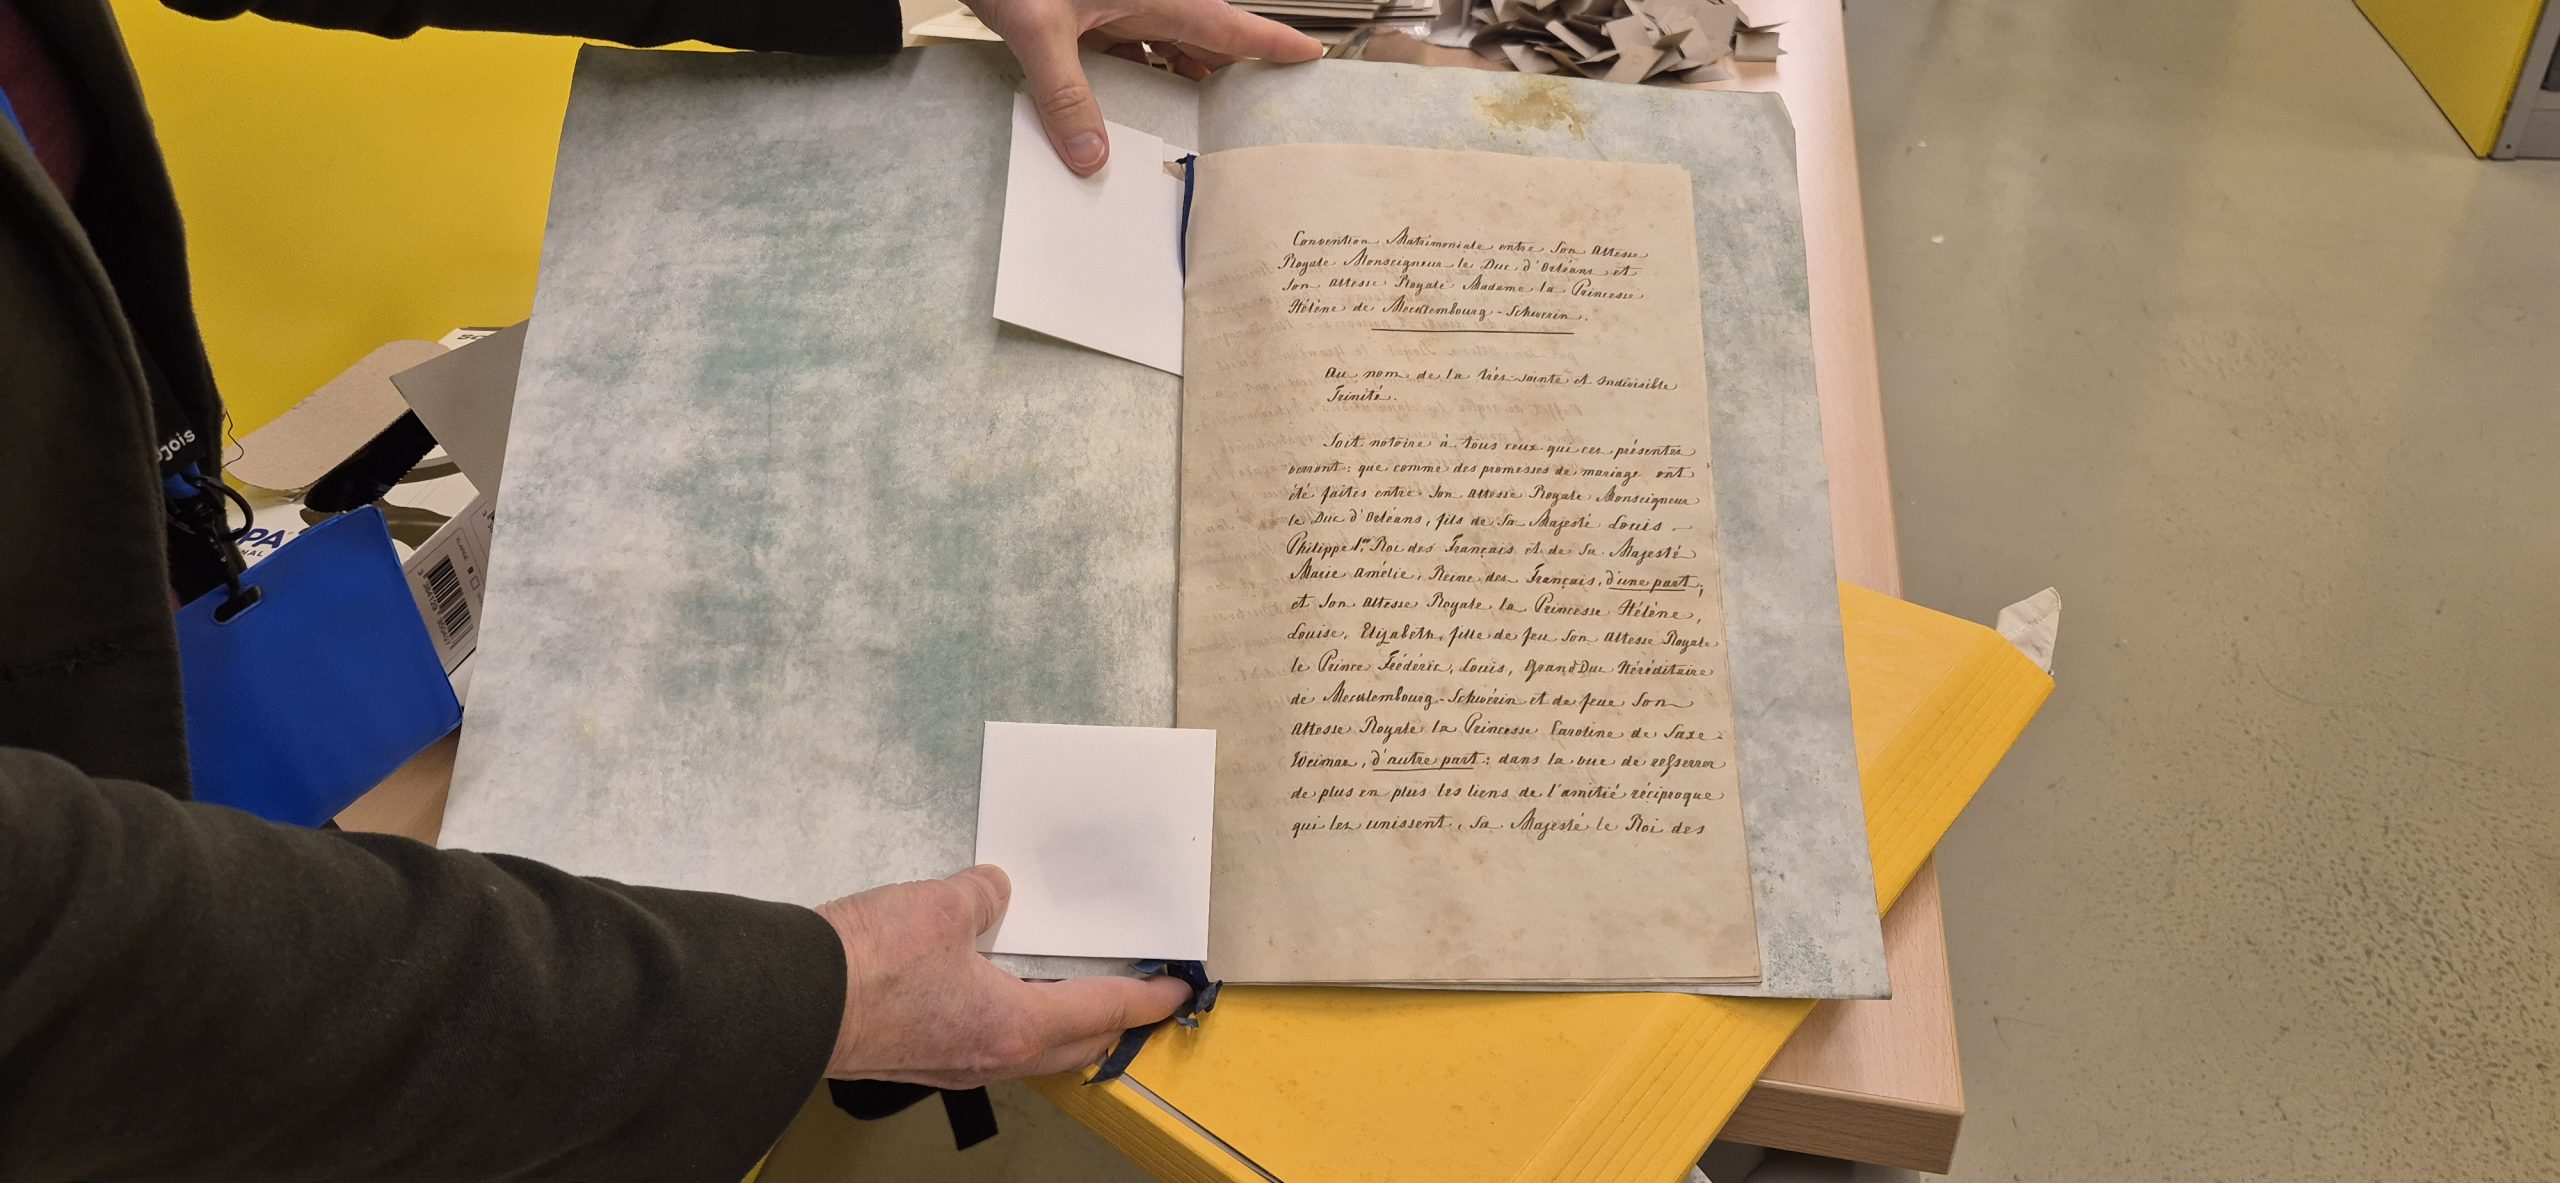 Convention Matrimoniale entre Son Altesse
Royale Monseigneur le Duc d'Orléans et
Son Altesse Royale Madame la Princesse
Hélène de Mecklembourg-Schwerin.
Au nom de la très sainte et indivisible
Trinité.
Soit notoire à tous ceux qui ces présentes
verront: que comme des promesses de mariage ont
été faites entre Son Altesse Royale Monseigneur
le Duc d'Orléans, fils de Sa Majesté Louis
Philippe 1er Roi des Français et de Sa Majesté
Marie Amélie, Reine des Français, d'une part;
et Son Altesse Royale la Princesse Hélène,
Louise, Elizabeth, fille de feu Son Altesse Royale
le Prince Frédéric, Louis, Grand Duc Héréditaire
de Mecklembourg-Schwérin et de feue Son
Altesse Royale la Princesse Caroline de Saxe-
Weimar, d'autre part: dans la vue de resserrer
de plus en plus les liens de l'amitié réciproque
qui les unissent, Sa Majesté le Roi des
jois
PA